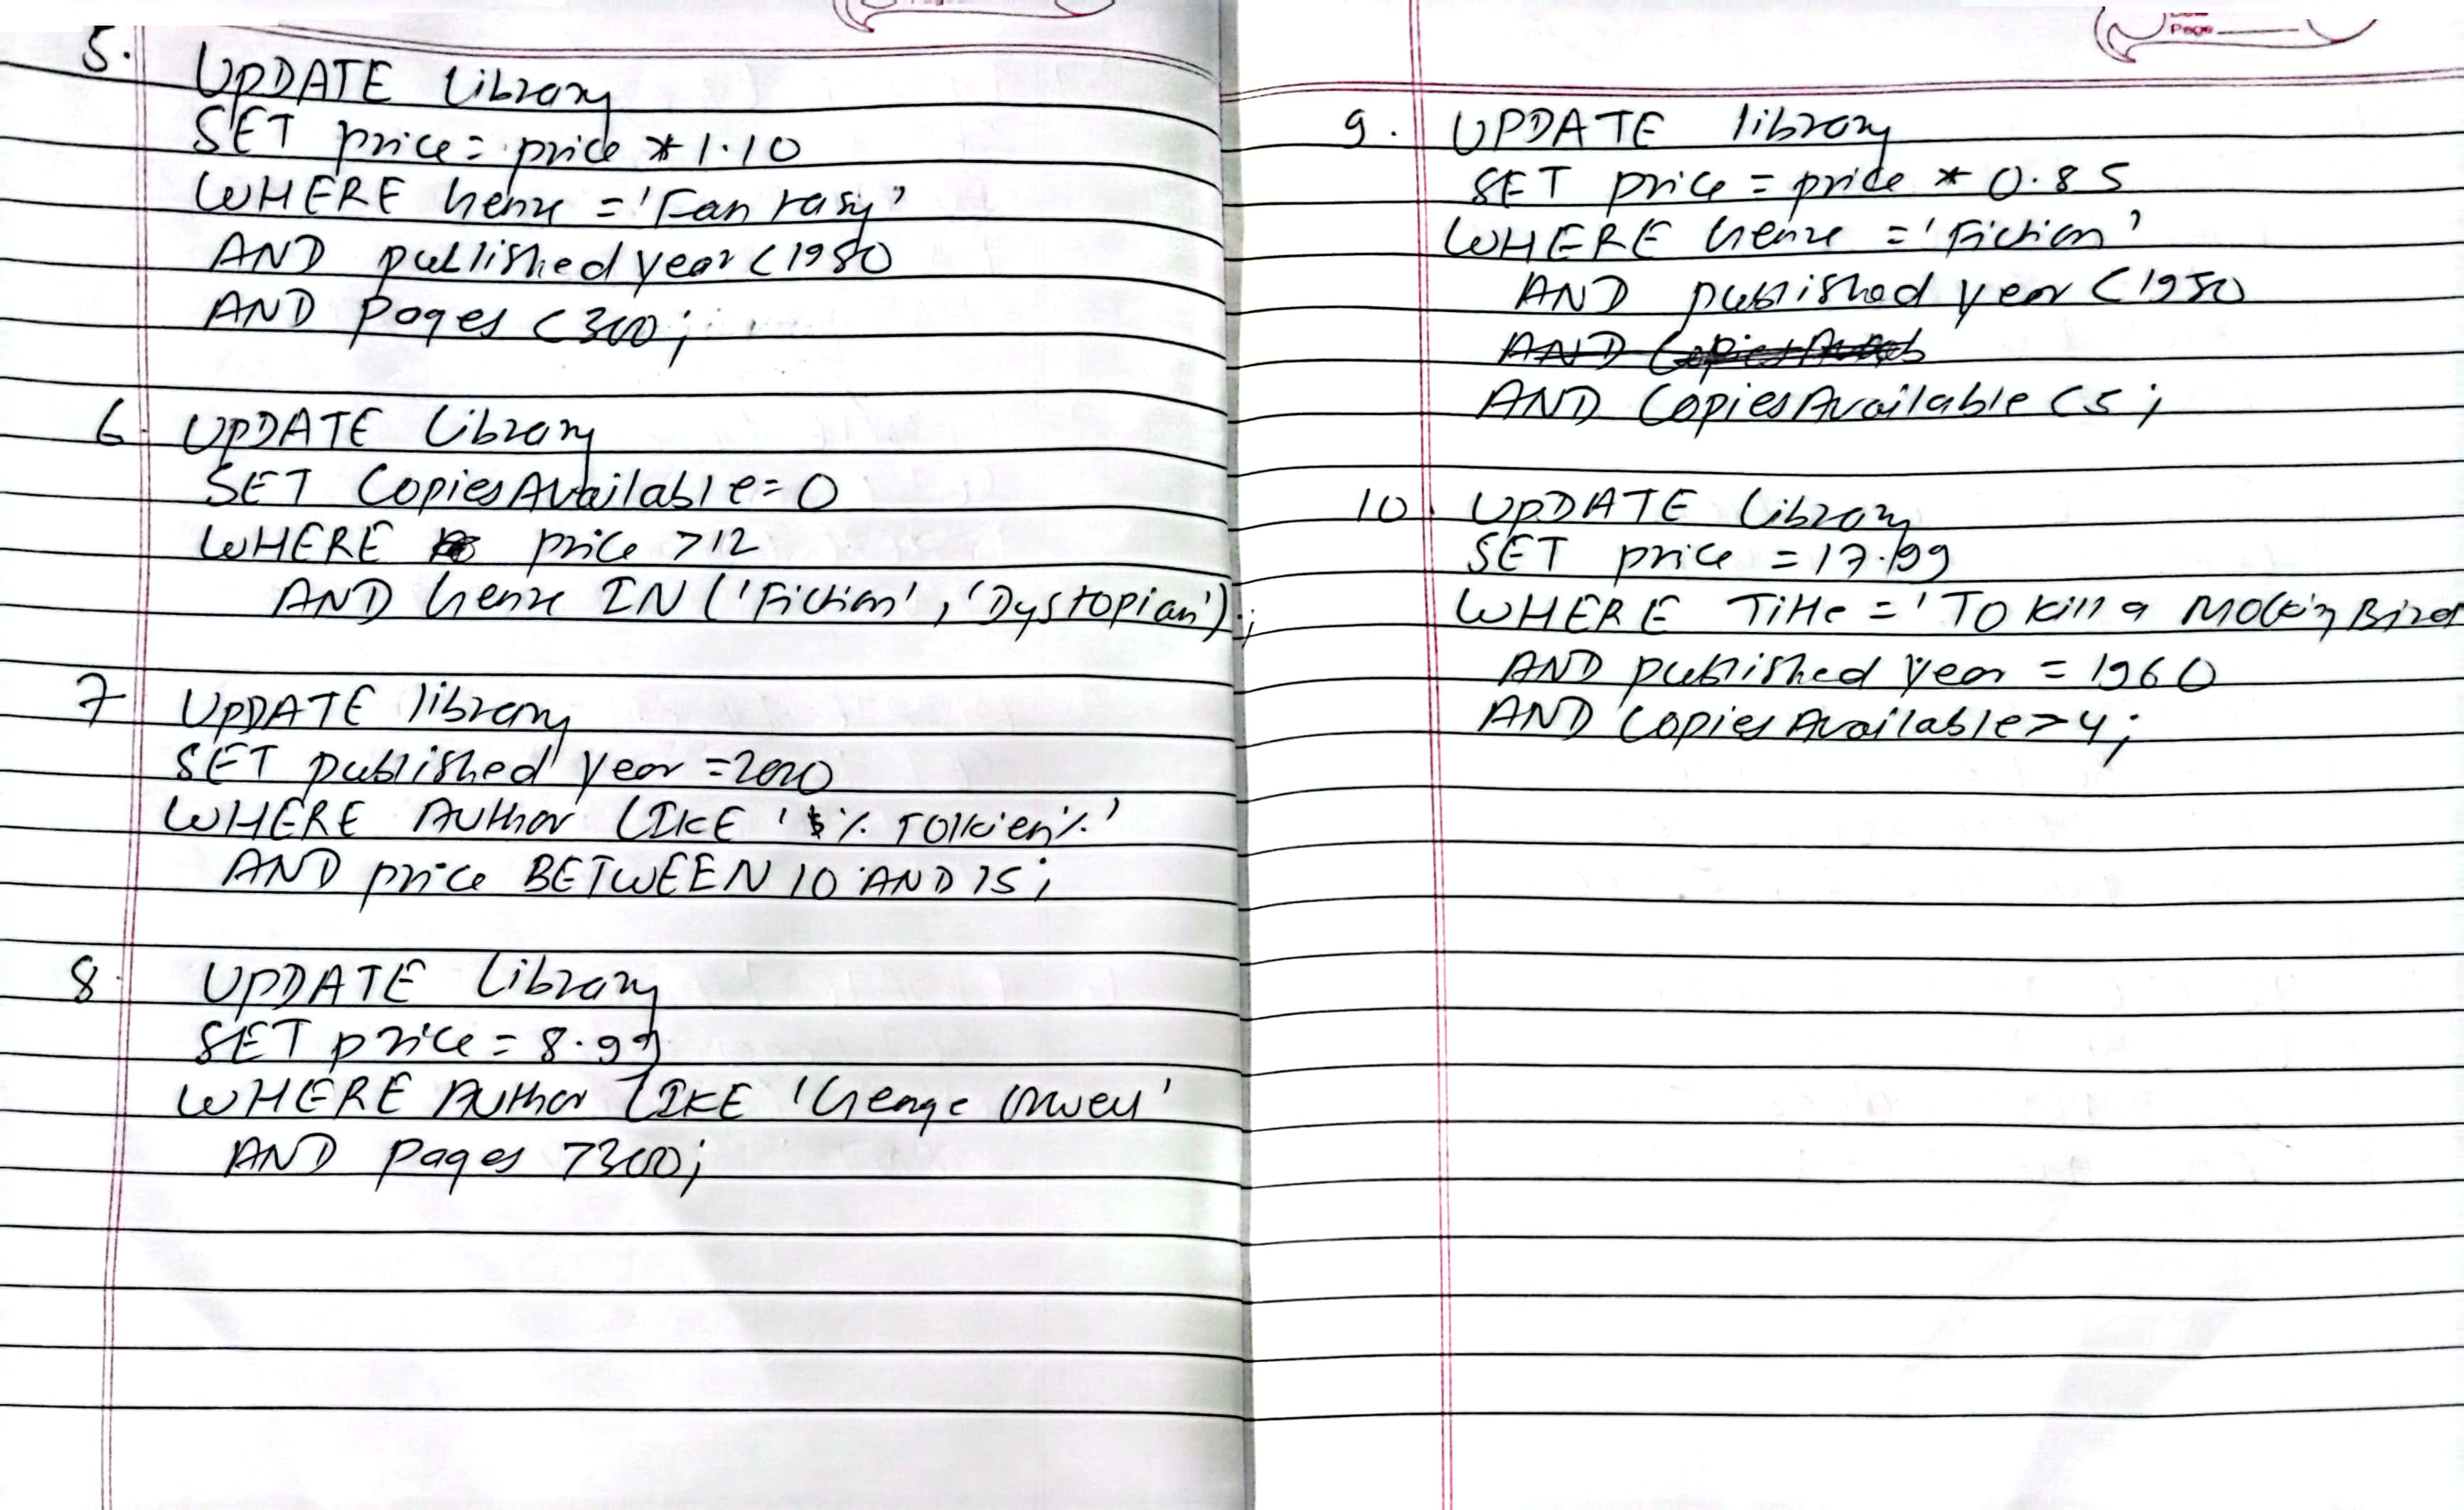 5. UPDATE Library
SET price = price * 1.10
WHERE Genre = 'Fantasy'
AND published year < 1950
AND Pages < 300;
6. UPDATE Library
SET CopiesAvailable = 0
WHERE price > 12
AND Genre IN ('Fiction', 'Dystopian');
7 UPDATE library
SET published year = 2020
WHERE Author LIKE '% Tolkien%'
AND price BETWEEN 10 AND 15;
8. UPDATE Library
SET price = 8.99
WHERE Author LIKE 'George Orwell'
AND Pages > 300;
Page
9. UPDATE library
SET price = price * 0.85
WHERE Genre = 'Fiction'
AND published year < 1950
AND CopiesAvailable < 5;
10. UPDATE Library
SET price = 17.99
WHERE Title = 'To kill a Mocking Bird
AND published year = 1960
AND CopiesAvailable > 4;